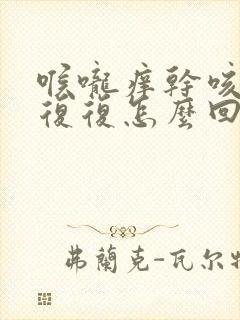 喉嚨癢幹咳
復復怎麼回
弗蘭克-瓦尔特